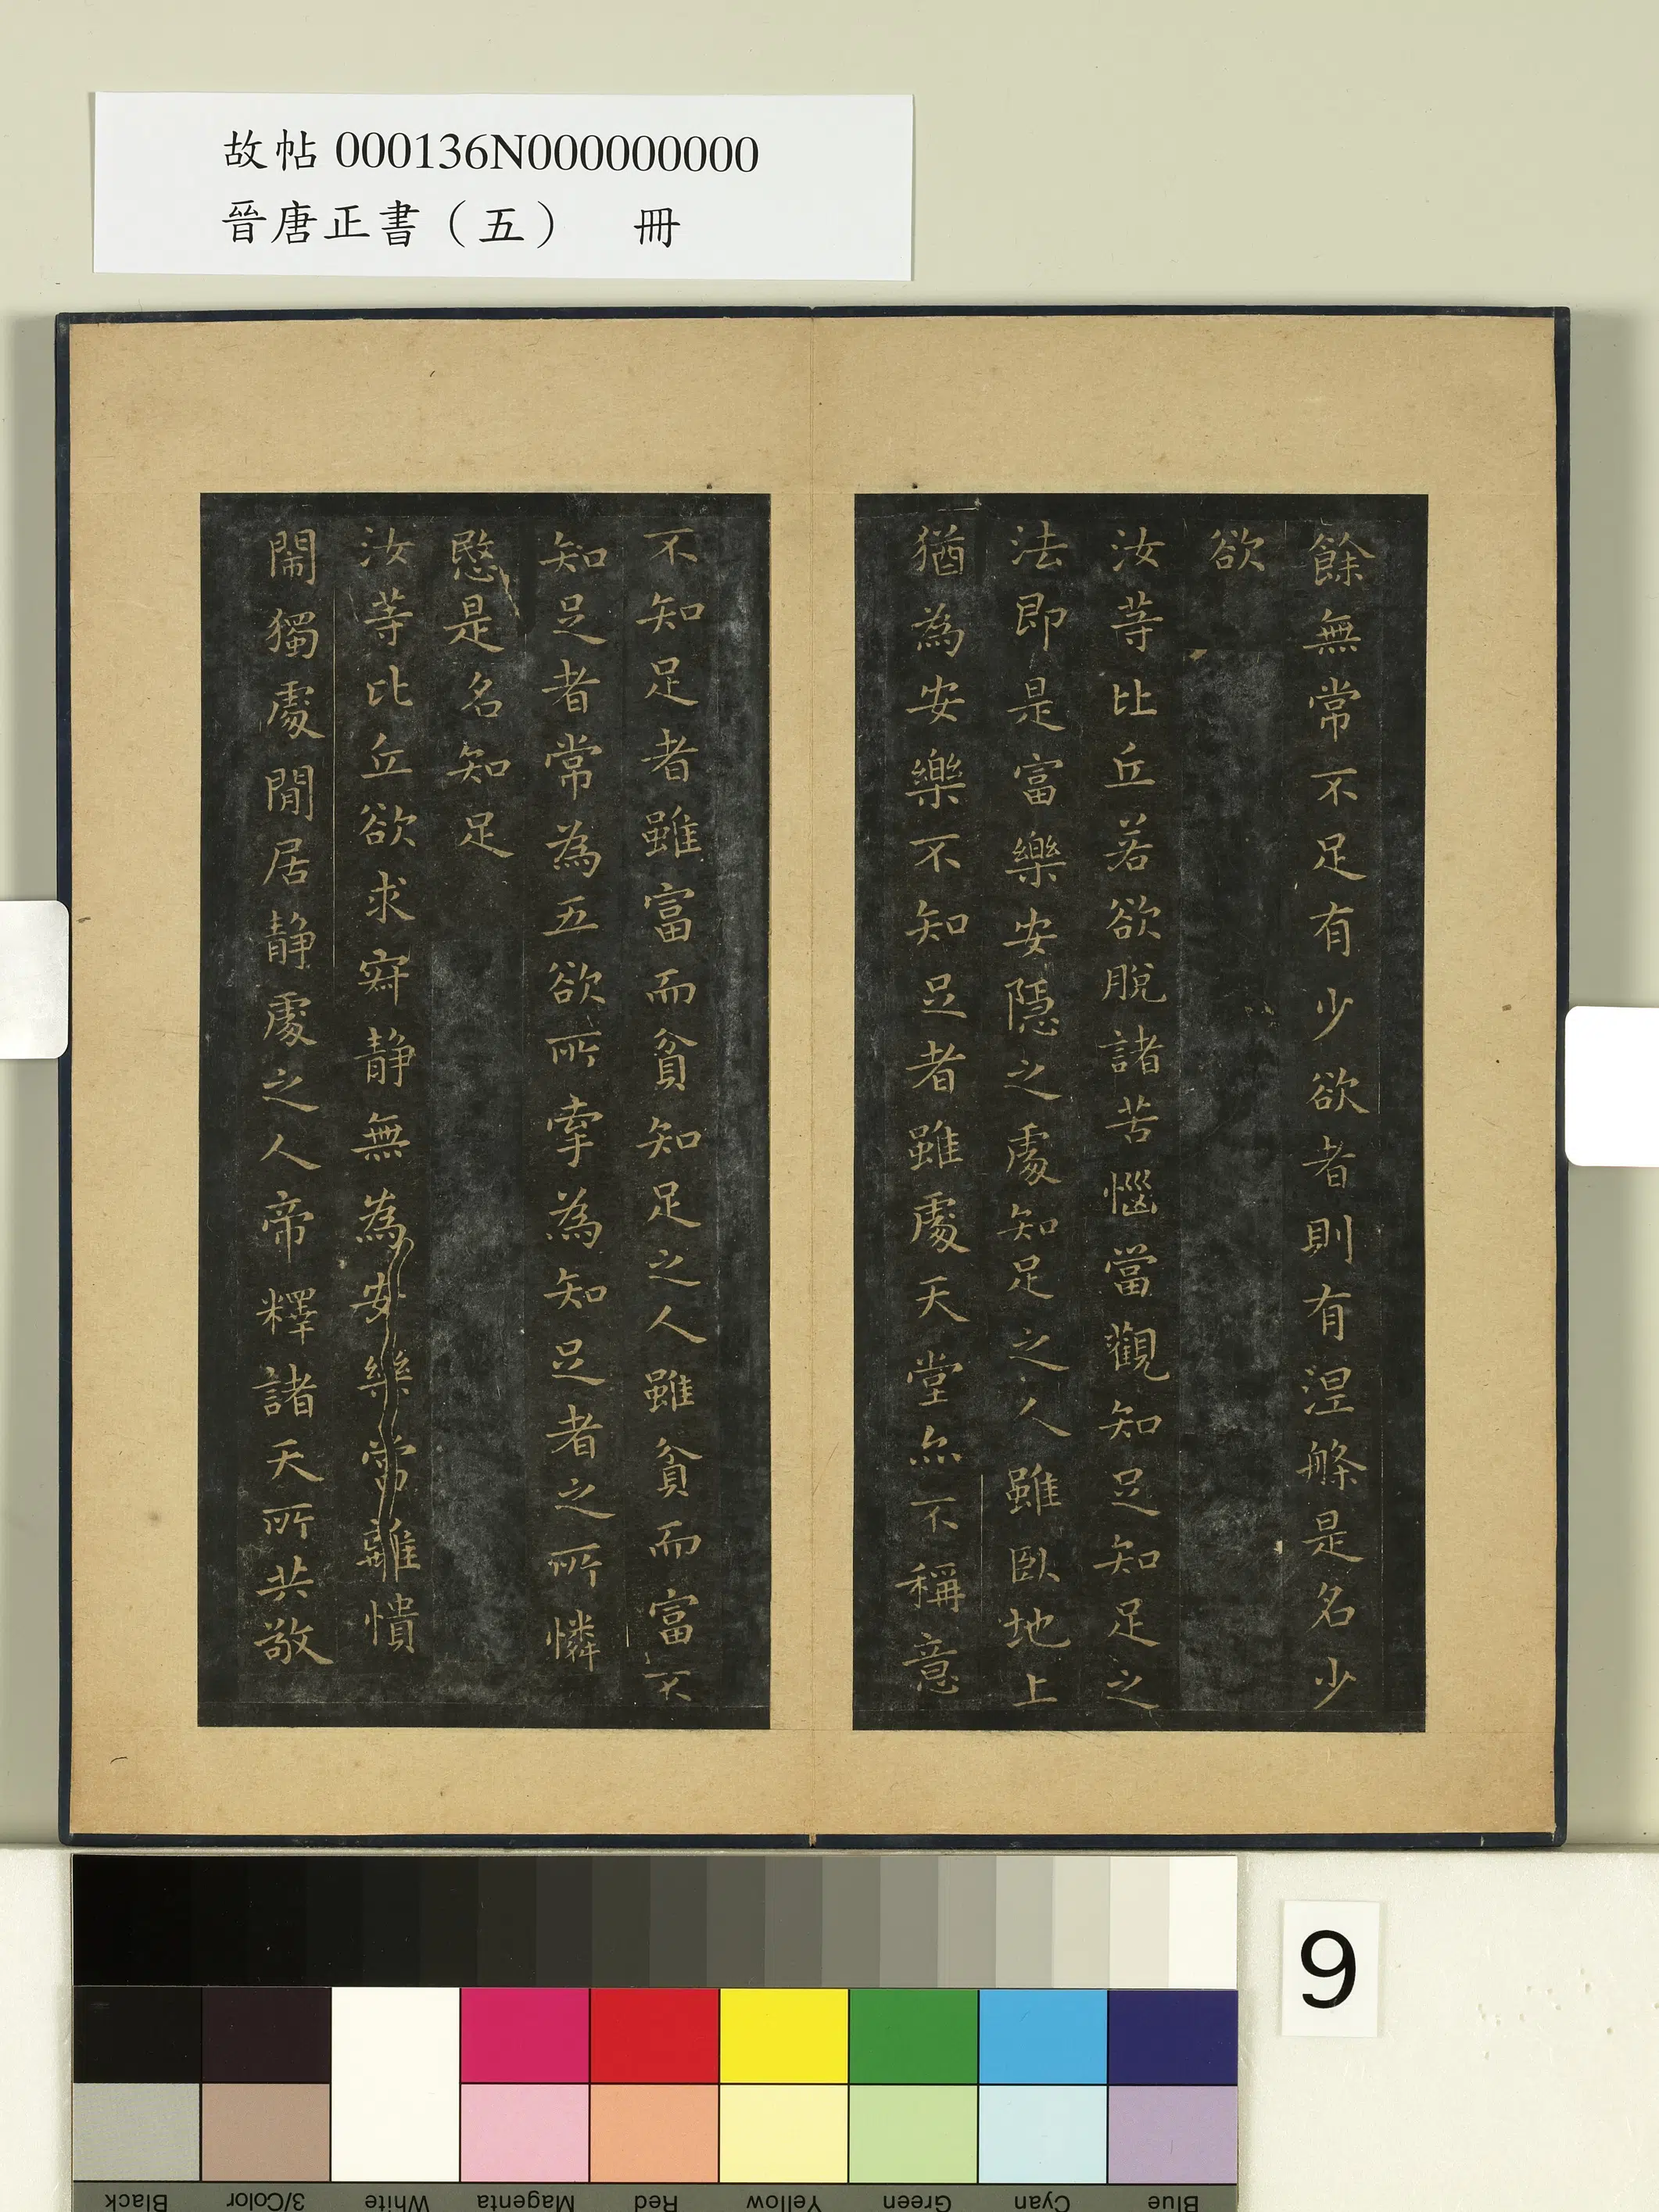 故帖 000136N000000000
晉唐正書（五）　冊
餘無常不足有少欲者則有涅槃是名少
欲
汝等比丘若欲脫諸苦惱當觀知足知足之
法即是富樂安隱之處知足之人雖臥地上
猶為安樂不知足者雖處天堂亦不稱意
不知足者雖富而貧知足之人雖貧而富不
知足者常為五欲所牽為知足者之所憐
愍是名知足
汝等比丘欲求寂靜無為安樂當離憒
閙獨處閒居靜處之人帝釋諸天所共敬
9
Black
3/Color
White
Magenta
Red
Yellow
Green
Cyan
Blue